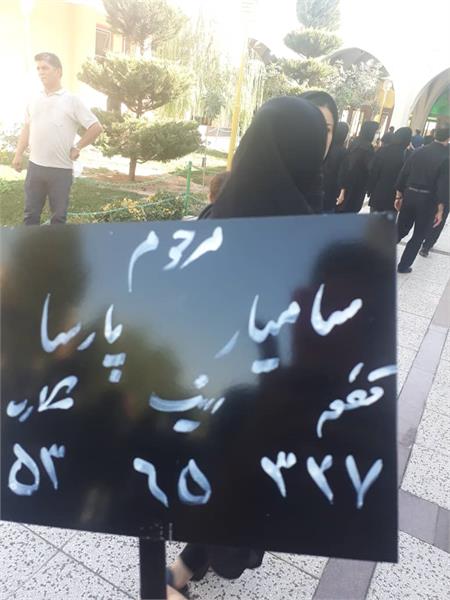 مرحوم
سامیار پارسا
قطعه ردیف شماره
۳۲۷ ۶۵ ۵۳